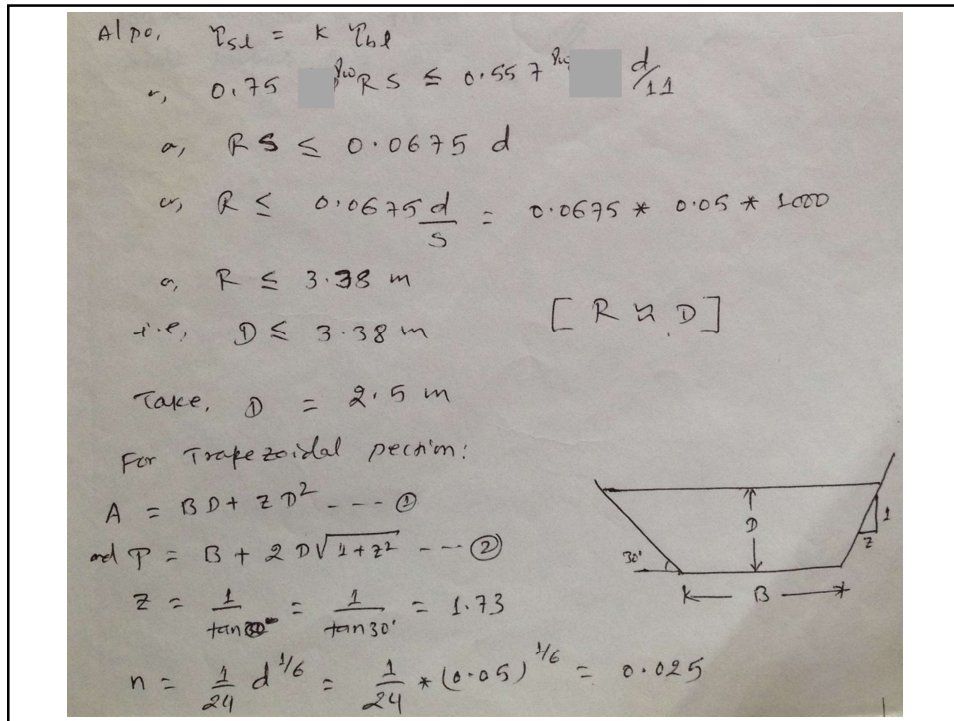 Also, τsl = K τbl
or, 0.75 γw R S ≤ 0.557 γw d/11
or, R S ≤ 0.0675 d
or, R ≤ 0.0675 d/S = 0.0675 * 0.05 * 1000
or, R ≤ 3.38 m
i.e, D ≤ 3.38 m [R ≈ D]
Take, D = 2.5 m
For Trapezoidal section:
A = BD + ZD² ---- ①
and P = B + 2D√(1+z²) ---- ②
z = 1/tan30° = 1/tan30° = 1.73
n = 1/24 d^1/6 = 1/24 * (0.05)^1/6 = 0.025
D
1
z
30°
B